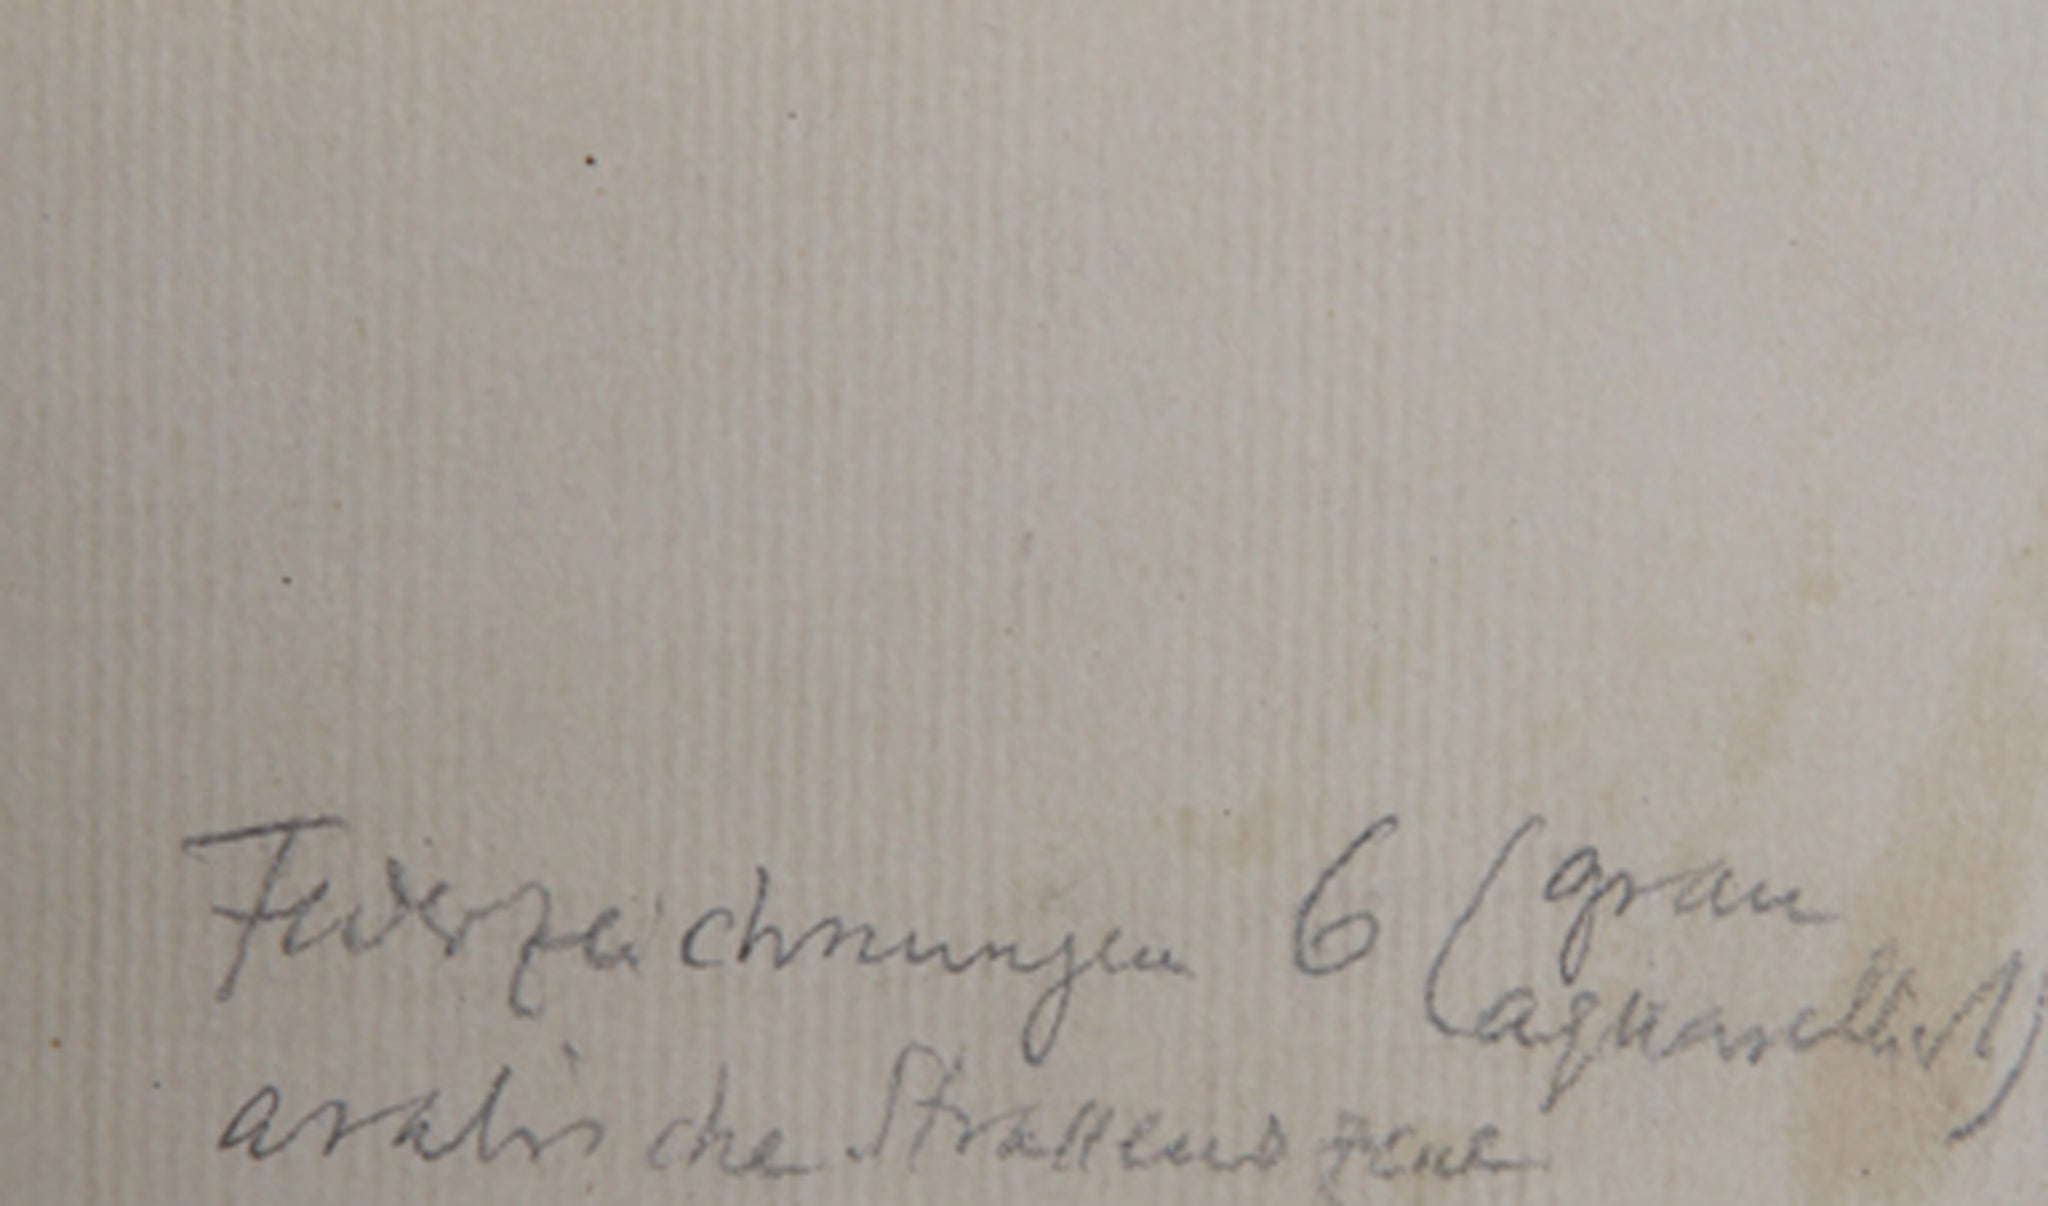 Federzeichnungen 6 (grau
aquarelliert)
arabische Straßenszene